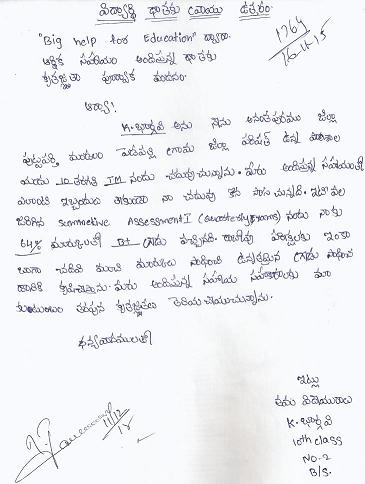 విద్యార్థి దాతకు వ్రాయు ఉత్తరం.
"Big help for Education" ద్వారా
ఆర్థిక సహాయం అందిస్తున్న దాతకు
కృతజ్ఞతా పూర్వక
1764
16-11-15
ఆర్యా!
K. భార్గవి అను నేను అనంతపురము జిల్లా
పుట్టపర్తి మండలం పెడపల్లి గ్రామ జిల్లా పరిషత్ ఉన్నత పాఠశాల
యందు 10 తరగతి TM నందు చదువుచున్నాను. మీరు అందిస్తున్న సహాయంతో
ఎలాంటి ఇబ్బందులు లేకుండా నా చదువు కొన సాగుచున్నది. ఇటీవల
జరిగిన Summative Assessment I (Quarterly Exams) నందు నాకు
64% మార్కులతో B+ గ్రేడు వచ్చినది. రాబోవు పరీక్షలకు ఇంకా
బాగా చదివి మంచి మార్కులు సాధించి ఉన్నతమైన గ్రేడు సాధించ
డానికి కృషిచేస్తాను. మీరు అందిస్తున్న సహాయ సహకారాలకు మా
కుటుంబం తరపున కృతజ్ఞతలు తెలియచేయుచున్నాను.
ధన్యవాదములతో
ఇట్లు
తమ విధేయురాలు
K. భార్గవి
10th class
NO-2
B/S.
11/12/15